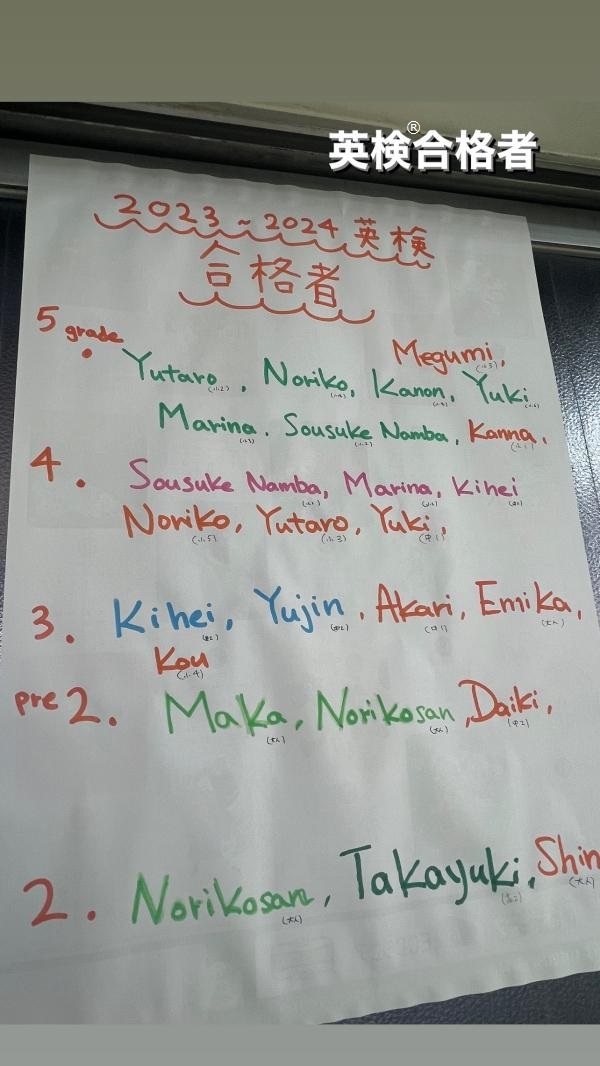 英検®合格者
2023~2024 英検
合格者
5 grade. Megumi,
(小3)
Yutaro, Noriko, Kanon, Yuki
(小2)
Marina, Sousuke Namba, Kanna,
(小3) (小2) (小1)
4. Sousuke Namba, Marina, Kihei
Noriko, Yutaro, Yuki,
(小5) (小3) (中1)
3. Kihei, Yujin, Akari, Emika,
(中2) (中1) (大人)
Kou
(小4)
pre 2. Maka, Norikosan, Daiki,
(大人) (大人) (中2)
2. Norikosan, Takayuki, Shin
(大人) (大人)